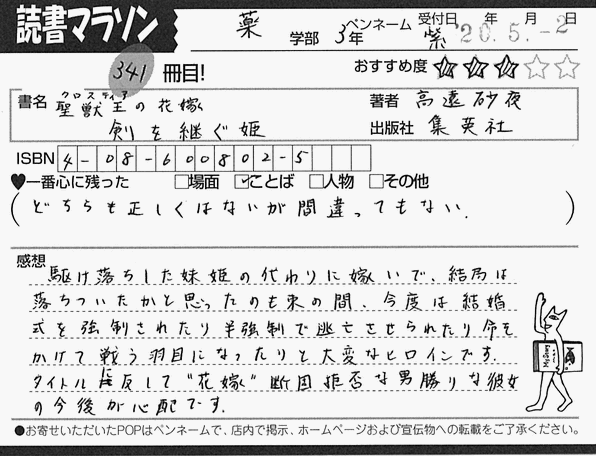 読書マラソン
薬 学部 3年 ペンネーム 紫 受付日 '20.5.-2 年 月 日
341 冊目!
おすすめ度 ★★★☆☆
書名 聖獣王の花嫁 クロスティア
剣を継ぐ姫
著者 高遠砂夜
出版社 集英社
ISBN 4-08-600802-5
♥一番心に残った □場面 ☑ことば □人物 □その他
(どちらも正しくはないが間違ってもない.)
感想
駆け落ちした妹姫の代わりに嫁いで、結局は
落ちついたかと思ったのも束の間、今度は結婚
式を強制されたり半強制で逃亡させられたり命を
かけて戦う羽目になったりと大変なヒロインです.
タイトルに反して"花嫁"断固拒否な男勝りな彼女
の今後が心配です.
●お寄せいただいたPOPはペンネームで、店内で掲示、ホームページおよび宣伝物への転載をご了承ください。